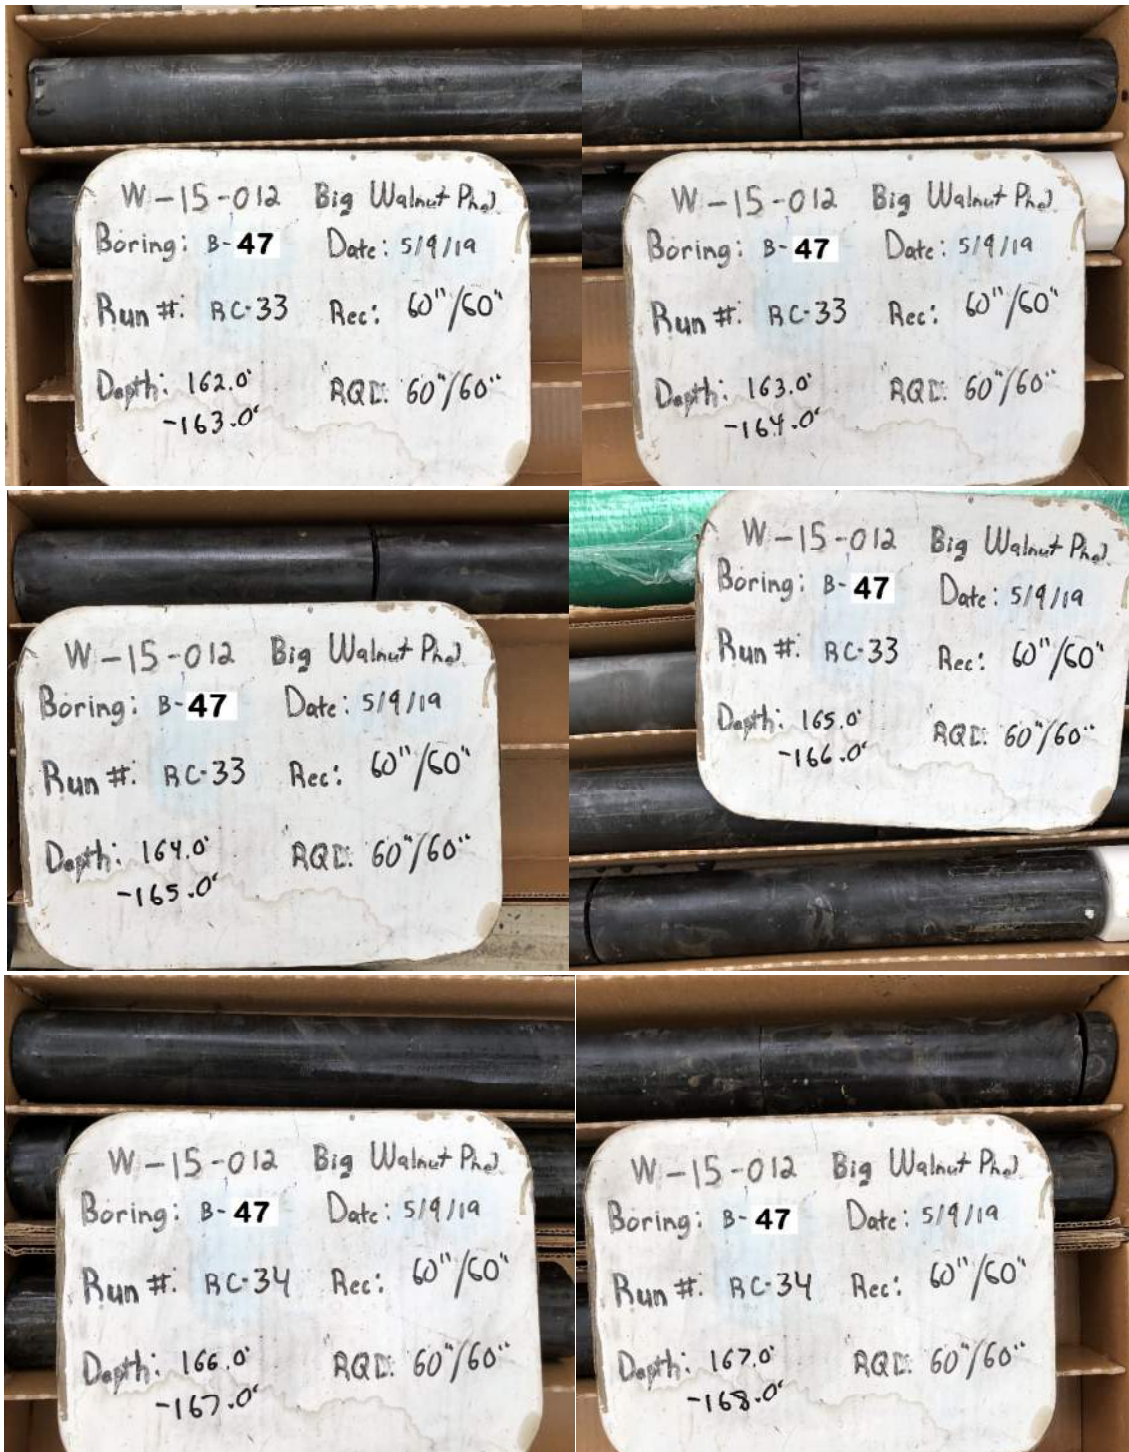 W-15-012 Big Walnut Ph2
Boring: B-47 Date: 5/9/19
Run #: RC-33 Rec: 60"/60"
Depth: 162.0' RQD: 60"/60"
-163.0'
W-15-012 Big Walnut Ph2
Boring: B-47 Date: 5/9/19
Run #: RC-33 Rec: 60"/60"
Depth: 163.0' RQD: 60"/60"
-164.0'
W-15-012 Big Walnut Ph2
Boring: B-47 Date: 5/9/19
Run #: RC-33 Rec: 60"/60"
Depth: 164.0' RQD: 60"/60"
-165.0'
W-15-012 Big Walnut Ph2
Boring: B-47 Date: 5/9/19
Run #: RC-33 Rec: 60"/60"
Depth: 165.0' RQD: 60"/60"
-166.0'
W-15-012 Big Walnut Ph2
Boring: B-47 Date: 5/9/19
Run #: RC-34 Rec: 60"/60"
Depth: 166.0' RQD: 60"/60"
-167.0'
W-15-012 Big Walnut Ph2
Boring: B-47 Date: 5/9/19
Run #: RC-34 Rec: 60"/60"
Depth: 167.0' RQD: 60"/60"
-168.0'